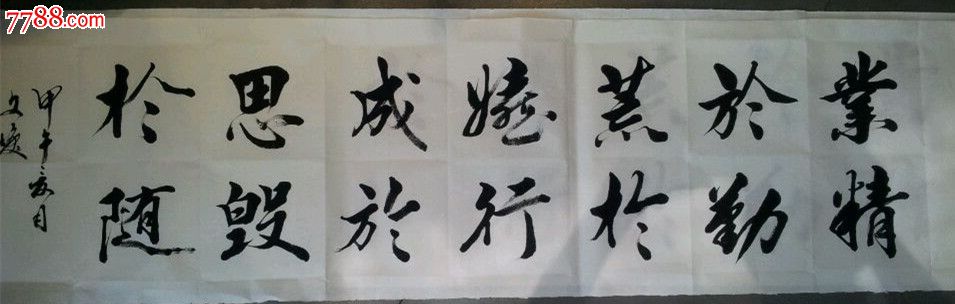 7788.com
業精
於勤
荒於
嬉行
成於
思毁
於随
甲午夏日
文